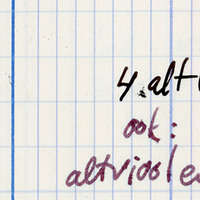 4. alt
ook:
altviool e